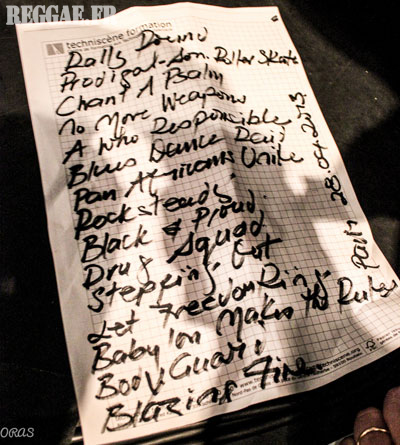 REGGAE.FR
techniscène formation
Rally Round
Prodigal Son. Roller Skate
Chant A Psalm
No More Weapons
A Who Responsible
Blues Dance Raid
Pan Africans Unite
Rock steady
Black & Proud.
Drug Squad
Stepping Out
Let Freedom Ring
Babylon Makes The Rules
Body Guard
Blazing Fire
Paris 28.04.2013
www.techniscene.org
ORAS